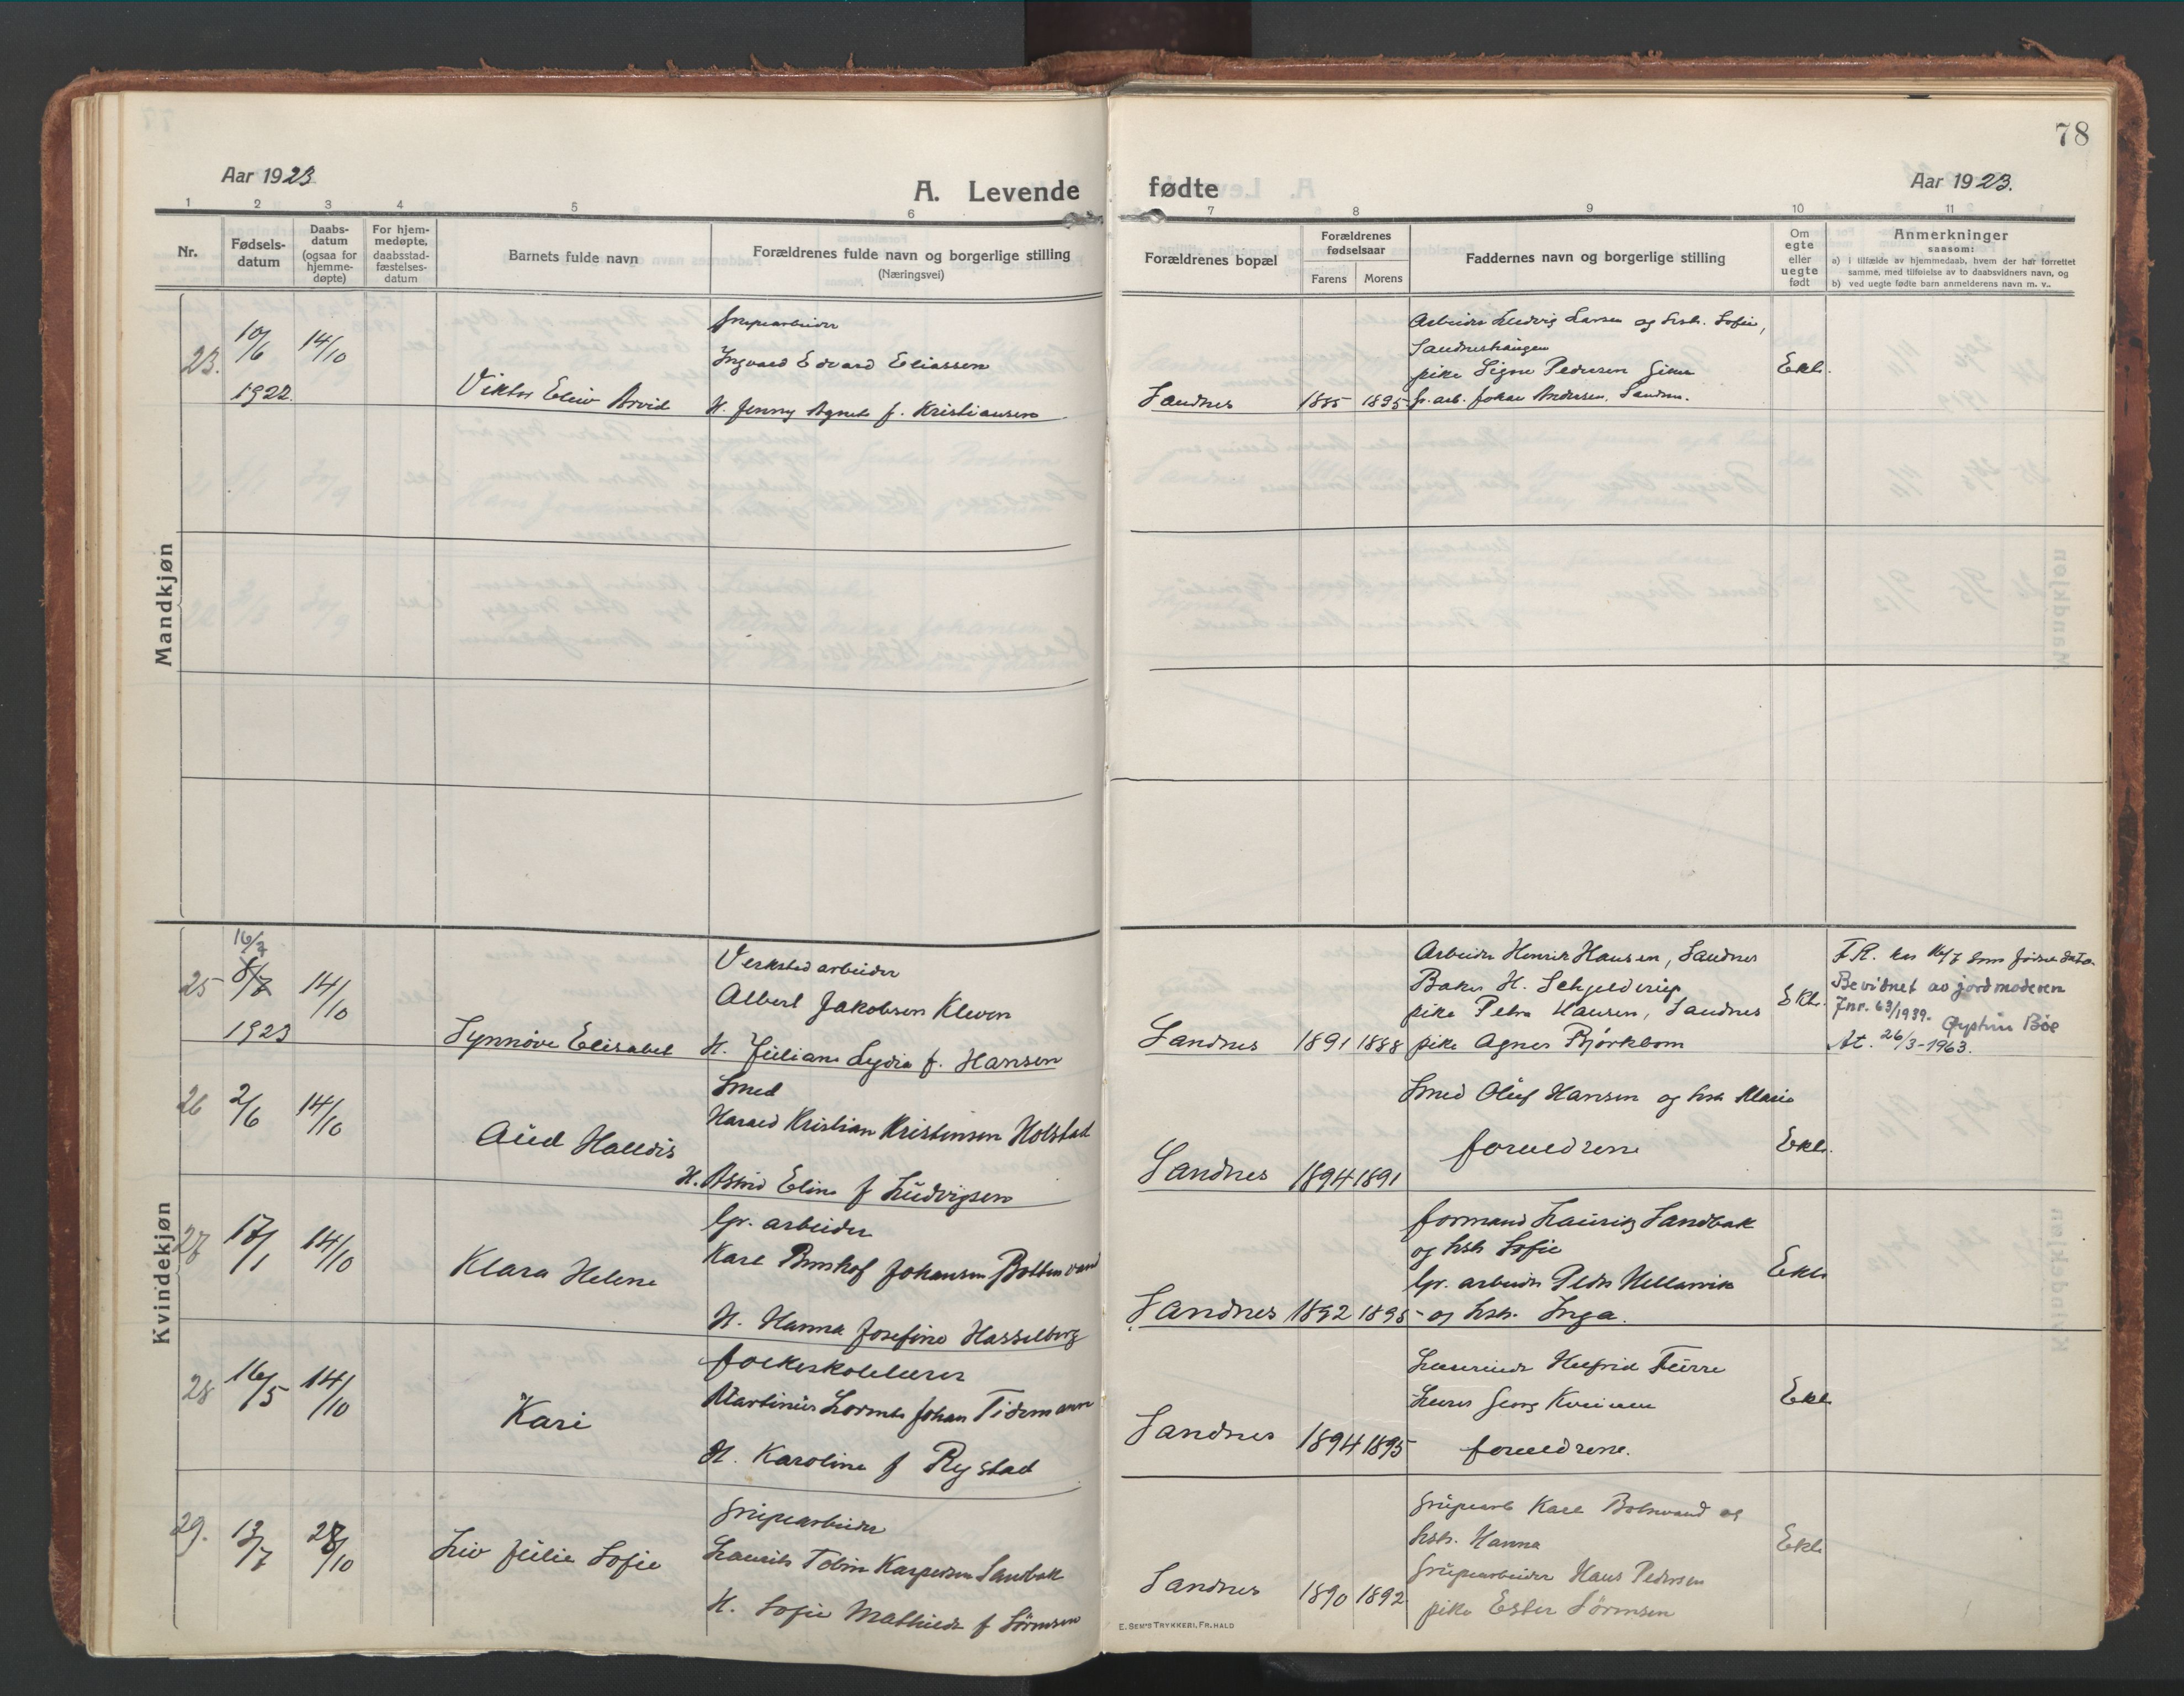 78
Aar 1923
A. Levende
fødte
Aar 1923.
1 2 3 4 5 6 7 8 9 10 11
Nr.
Fødsels-
datum
Daabs-
datum
(ogsaa for
hjemme-
døpte)
For hjem-
medøpte,
daabsstad-
fæstelses-
datum
Barnets fulde navn
Forældrenes fulde navn og borgerlige stilling
(Næringsvei)
Forældrenes bopæl
Forældrenes
fødselsaar
Farens Morens
Faddernes navn og borgerlige stilling
Om
egte
eller
uegte
født
Anmerkninger
saasom:
a) i tilfælde av hjemmedaab, hvem der har forrettet
samme, med tilføielse av to daabsvidners navn, og
b) ved uegte fødte barn anmelderens navn m. v..
Mandkjøn
23. 10/6 1922. 14/10
Viktor Arvid
Grupearbeider
Ingvald Edvard Eliassen
H. Jenny Agnete f. Kristiansen
Sandnes 1885 1895
Arbeider Ludvig Larsen og hstr. Sofie,
Sandneshaugen
pike Signe Pedersen
gr. arb. Johan Andersen, Sandnes.
Ekte.
Kvindekjøn
25 16/7 8/7 1923 14/10
Synnöve Elisabet
Verkstedarbeider
Albert Jakobsen Kleven
H. Juliane Lydia f. Hansen
Sandnes 1891 1888
Arbeider Henrik Hansen, Sandnes
Baker H. Schjelderup
pike Petra Hansen, Sandnes
pike Agnes Bjørkbom
Ekte.
F.R. har 16/7 som fødselsdato.
Bevidnet av jordmoderen
Jnr. 63/1939. Øystein Bøe
At. 26/3-1963.
26 2/6 14/10
Aud Halldis
Smed
Harald Kristian Kristensen Holstad
H. Astrid Eline f Ludvigsen
Sandnes 1894 1891
Smed Oluf Hansen og hstr Marie
forældrene
Ekte.
27 17/1 14/10
Klara Helene
Gr. arbeider
Karl Johansen Bottenvand
H. Hanna Josefine Hasselberg
Sandnes 1892 1895
formand Laurits Sandbak
og hstr Sofie
Gr. arbeider Peder Hellarvik
og hstr. Inga.
Ekte
28 16/5 14/10
Kari
folkeskolelærer
Martinius Johan Tidemann
H. Karoline f Rystad
Sandnes 1894 1895
Lærerinde Furre
Lærer Georg
forældrene.
Ekte
29. 13/7 28/10
Liv Julie Sofie
Grupearbeider
Laurits Tobin Kaspersen Sandbak
H. Sofie Mathilde f Sörensen
Sandnes 1890 1892
Grupearb Karl Botnvand og
hstr. Hanna
Grupearbeider Hans Pedersen
pike Ester Sörensen
Ekte
E. SEM'S TRYKKERI, FR.HALD